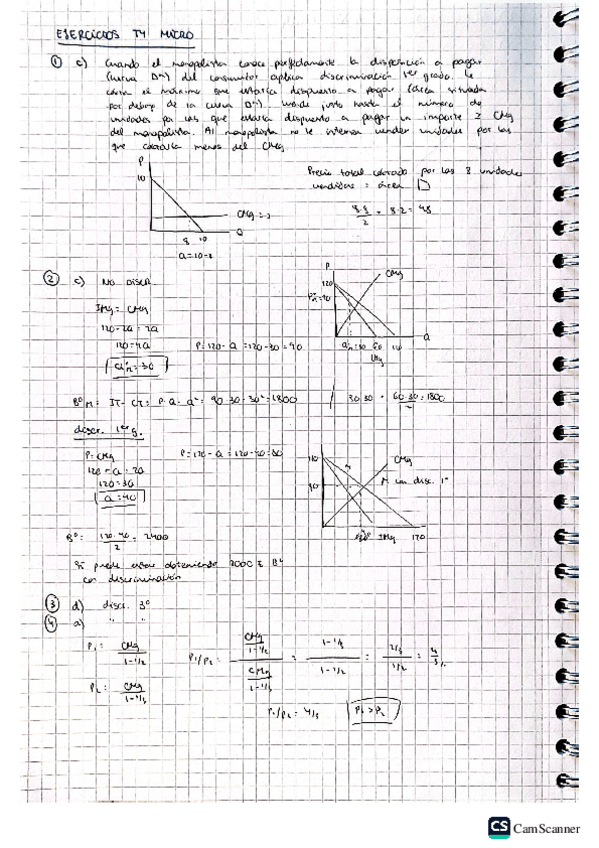 EJERCICIOS T4 MICRO
① c) Cuando el monopolista conoce perfectamente la disposición a pagar
(curva Dᵐ) del consumidor aplica discriminación 1er grado. Le
cobra el máximo que estaría dispuesto a pagar (área situada
por debajo de la curva Dᵐ). Vende justo hasta el número de
unidades por las que estaría dispuesto a pagar un importe ≥ CMg
del monopolista. Al monopolista no le interesa vender unidades por las
que cobraría menos del CMg
P
10
CMg = 2
Q
8 10
Q = 10 -
Precio total cobrado por las 8 unidades
vendidas = área
8·8/2 + 8·2 = 48
② c) NO DISCR.
IMg = CMg
120-2Q = 2Q
120 = 4Q
Qᵐ = 30
P = 120 - Q = 120 - 30 = 90
P
120
= 90
CMg
Q
= 30 60 120
IMg
BºM = IT - CT = P·Q - Q² = 90·30 - 30² = 1800
30·30 + 60·30/2 = 1800
discr. 1er g.
P = CMg
120 - Q = 2Q
120 = 3Q
Q = 40
P = 120 - Q = 120 - 40 = 80
120
CMg
M con disc. 1º
IMg 120
Bº = 120·40/2 = 2400
Sí puede estar obteniendo 2000 € Bº
con discriminación
③ d) discr. 3º
④ a) " "
P₁ = CMg/1-1/2
P₂ = CMg/1-1/3
P₁/P₂ = CMg/1-1/2 / CMg/1-1/3 = 1-1/3 / 1-1/2 = 2/3 / 1/2 = 4/3
P₁/P₂ = 4/3
P₁ > P₂
CS CamScanner